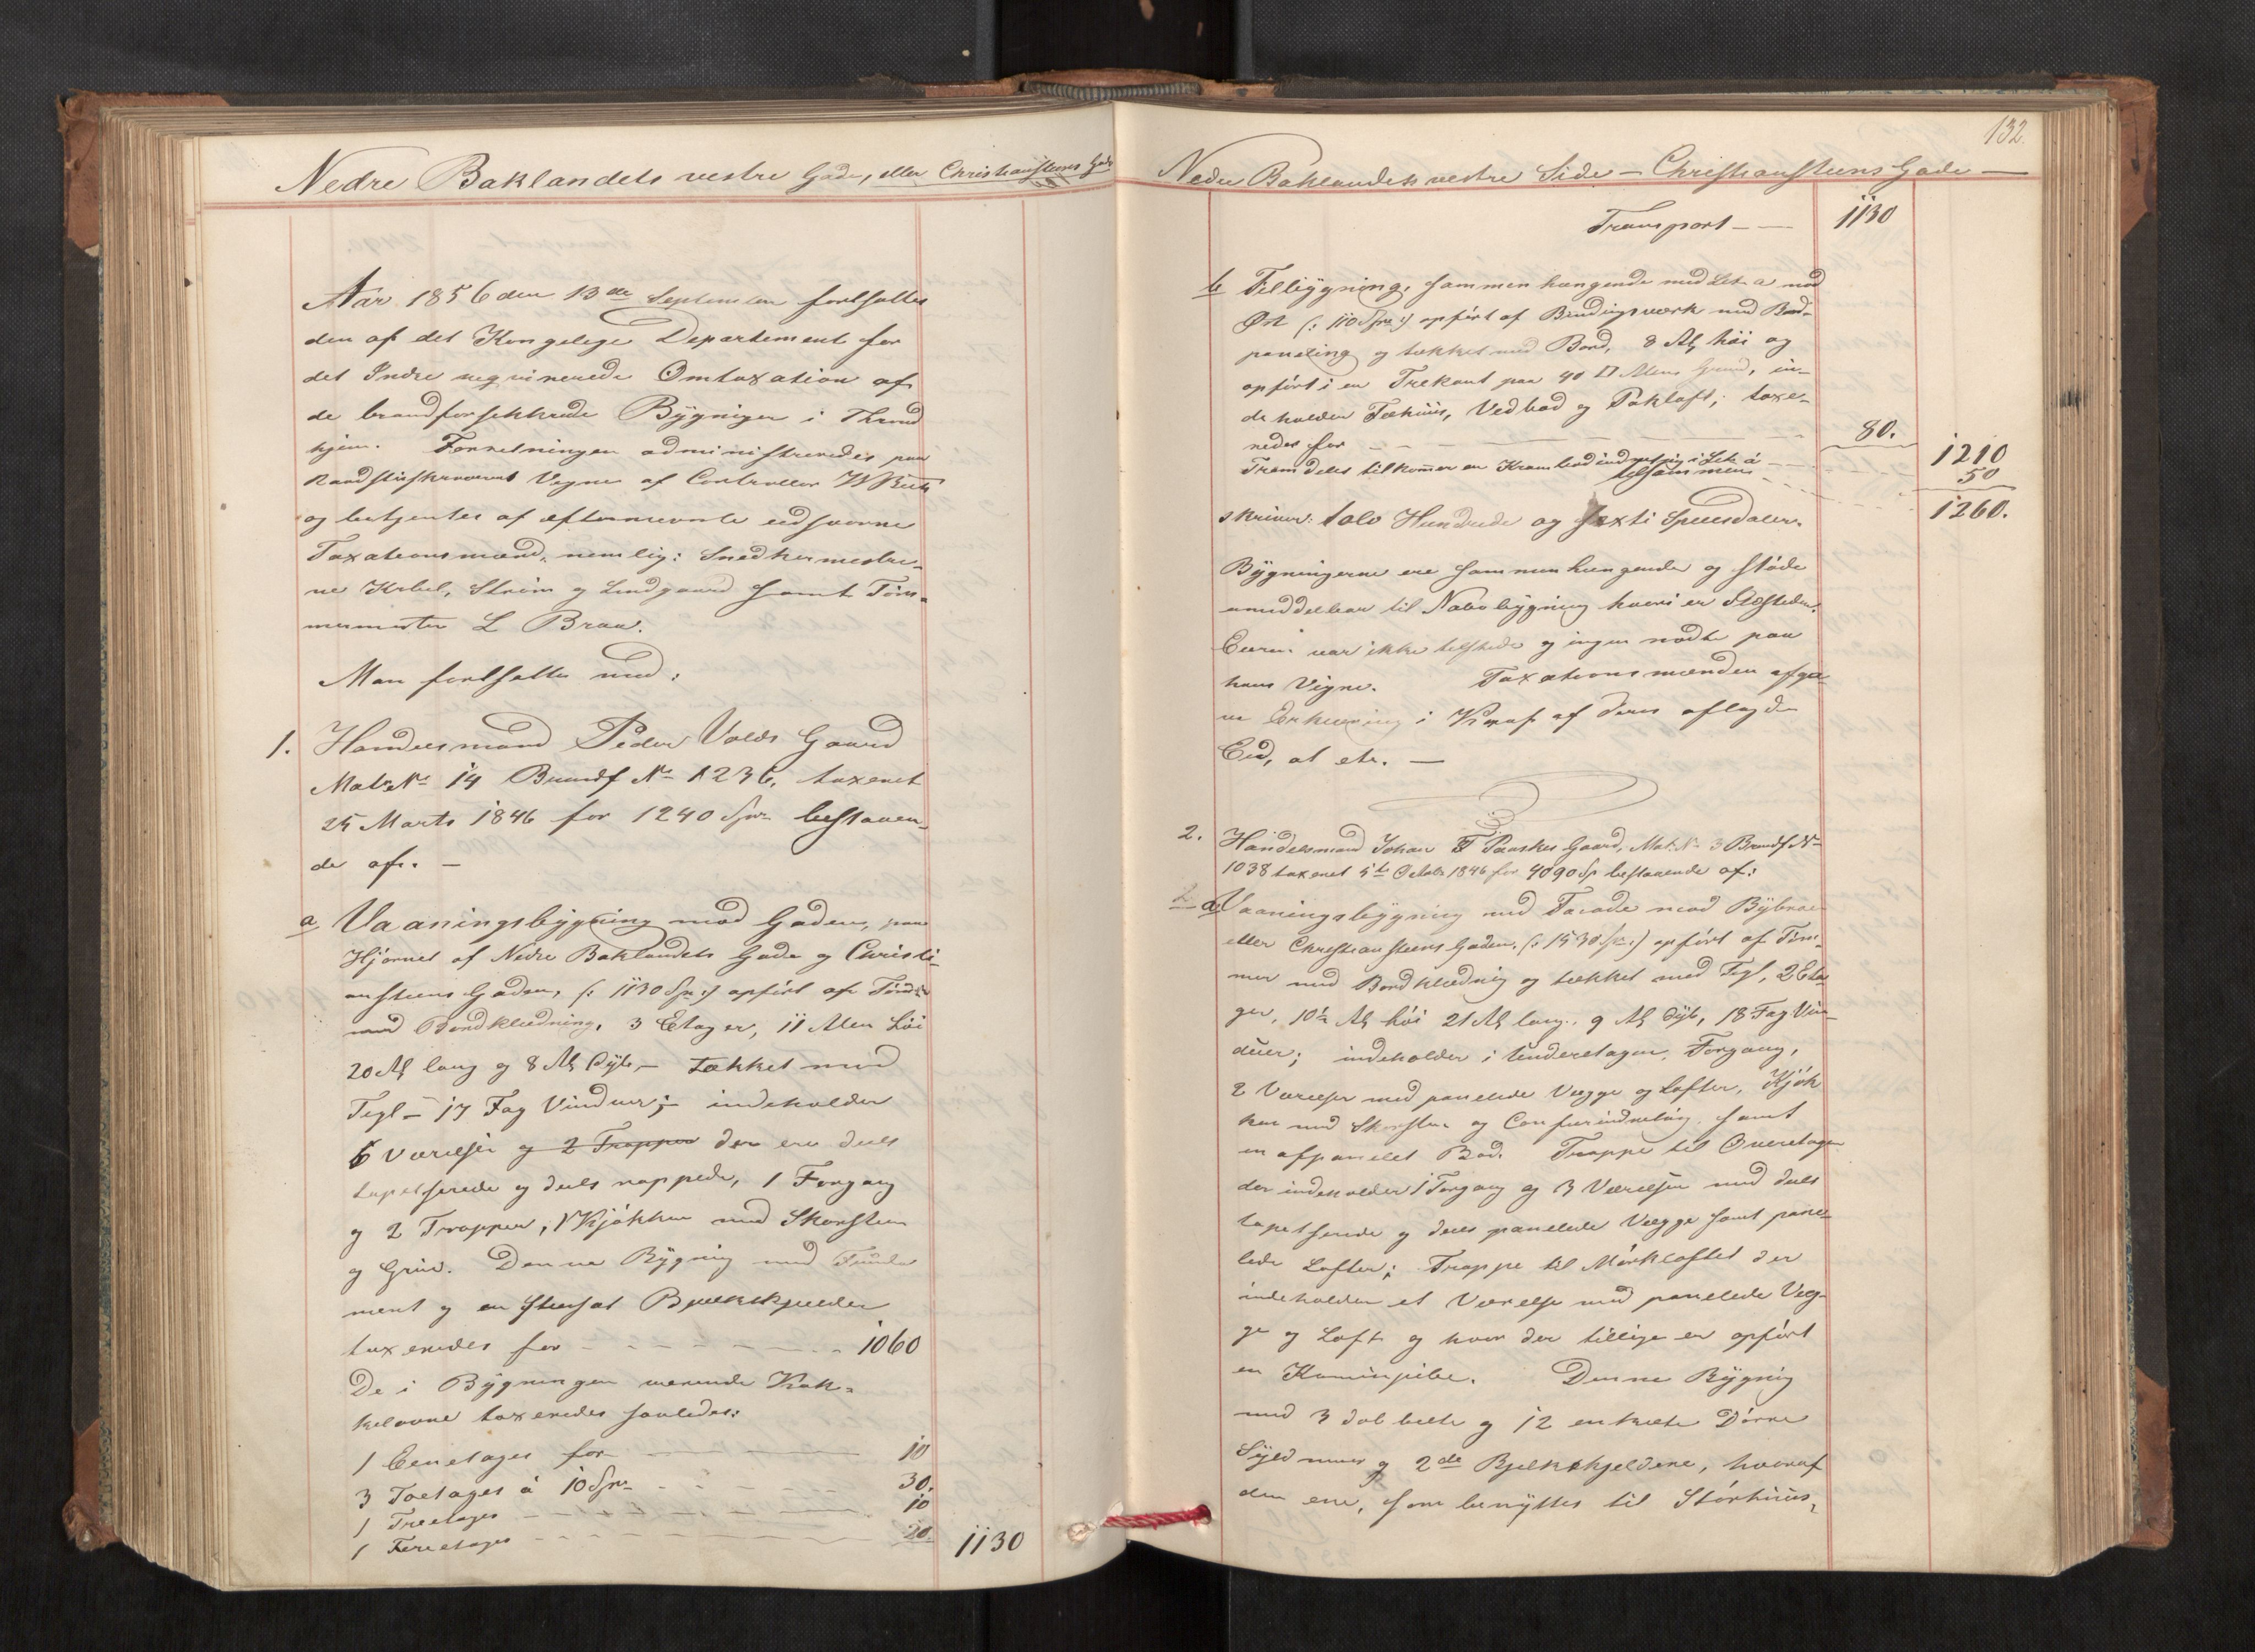 Nedre Baklandets vestre Gade, eller Christianstens Gade
Aar 1856 den 13de September fortsattes
den af det Kongelige Departement for
det Indre reqvirerede Omtaxation af
de brandforsikkrede Bÿgninger i Thrond
hjem. Forretningen administreredes paa
Raadstueskriverens Vegne af Controlleur
og betjentes af efternævnte eedsvorne
Taxationsmænd, nemlig: Snedkermestre-
ne Krbel, Strøm og Lindgaard samt Töm-
mermester L Braa.
Man fortsatte med:
1. Handelsmand Peder Volds Gaard
Mat: No 14 Brandf No 1236, taxeret
25 Marts 1846 for 1240 Spr bestaaen-
de af: —
a Vaaningsbÿgning mod Gaden, paa
Hjørnet af Nedre Baklandets Gade og Christi-
anstens Gaden, (: 1130 Spr :) opfört af Tömmer
med Bordklædning, 3 Etager, 11 Alen höi
20 Al lang og 8 Al Dÿb, — tækket med
Tegl — 17 Fag Vinduer; — indeholder
6 Værelser og 2 Trapper der ere deels
tapetserede og deels rappede, 1 Forgang
og 2 Trapper, 1 Kjökken med Skorsteen
og Grue. Denne Bÿgning med Funda
ment og en steensat Bjelkekjelder
taxeredes for - - - - - - - 1060
De i Bÿgningen værende Kak-
kelovne taxeredes saaledes:
1 Eenetages for — — — 10
3 Toetages à 10 Spr - - - 30.
1 Treetages - - - - - 10
1 Fireetages - - - - - 20. 1130
132.
Nedre Baklandets vestre Side — Christianstens Gade —
Transport — — 1130
b Tilbÿgning, sammenhængende med Lit. a mod
Öst (: 110 Spr :) opfört af Bindingsværk med Bord-
paneling og tækket med Bord, 8 Al höi og
opfört i en Trekant paa 40 □ Alens Grund, in-
deholder Fæhüüs, Vedbod og Pakloft; taxe-
redes for - - - - 80. 1210
Fremdeles tilkommer en Krambodindretning i Lit. a - - - 50
tilsammen - - - 1260.
skriver: tolv Hundrede og sexti Speciesdaler.
Bÿgningerne ere sammenhængende og stöde
umiddelbar til Nabobÿgning hvori er Ildsteder.
Eieren var ikke tilstede og ingen mödte paa
hans Vegne. Taxationsmændene afga-
ve Erklæring i Kraft af deres aflagde
Eed, at etc. —
2. Handelsmand Johan F Paaskes Gaard, Mat: No 3 Brandf No
1038 taxeret 5te Octobr 1846 for 4090 Sp bestaaende af:
a Vaaningsbÿgning med Facade mod Bÿbroe
eller Christianstens Gaden, (: 1530 Spr :) opfört af Töm-
mer med Bordklædning og tækket med Tegl, 2 Eta-
ger, 10½ Al höi 21 Al lang, 9 Al Dÿb, 18 Fag Vin-
düer; indeholder i Underetagen, Forgang,
2 Værelser med panelede Vægge og Lofter, Kjök
ken med Skorsteen og Comfurindretning, samt
en afpanelet Bod. Trappe til Overetagen
der indeholder 1 Forgang og 3 Værelser med deels
tapetserede og deels panelede Vægge samt pane-
lede Lofter; Trappe til Mörkloftet der
indeholder et Værelse med panelede Væg-
ge og Loft og hvor der tillige er opfört
en Kaminpibe. Denne Bÿgning
med 3 dobbelte og 12 enkelte Dörre
Sÿldmuur og 2de Bjelkekjeldere, hvoraf
den ene, som benÿttes til Störhüüs,